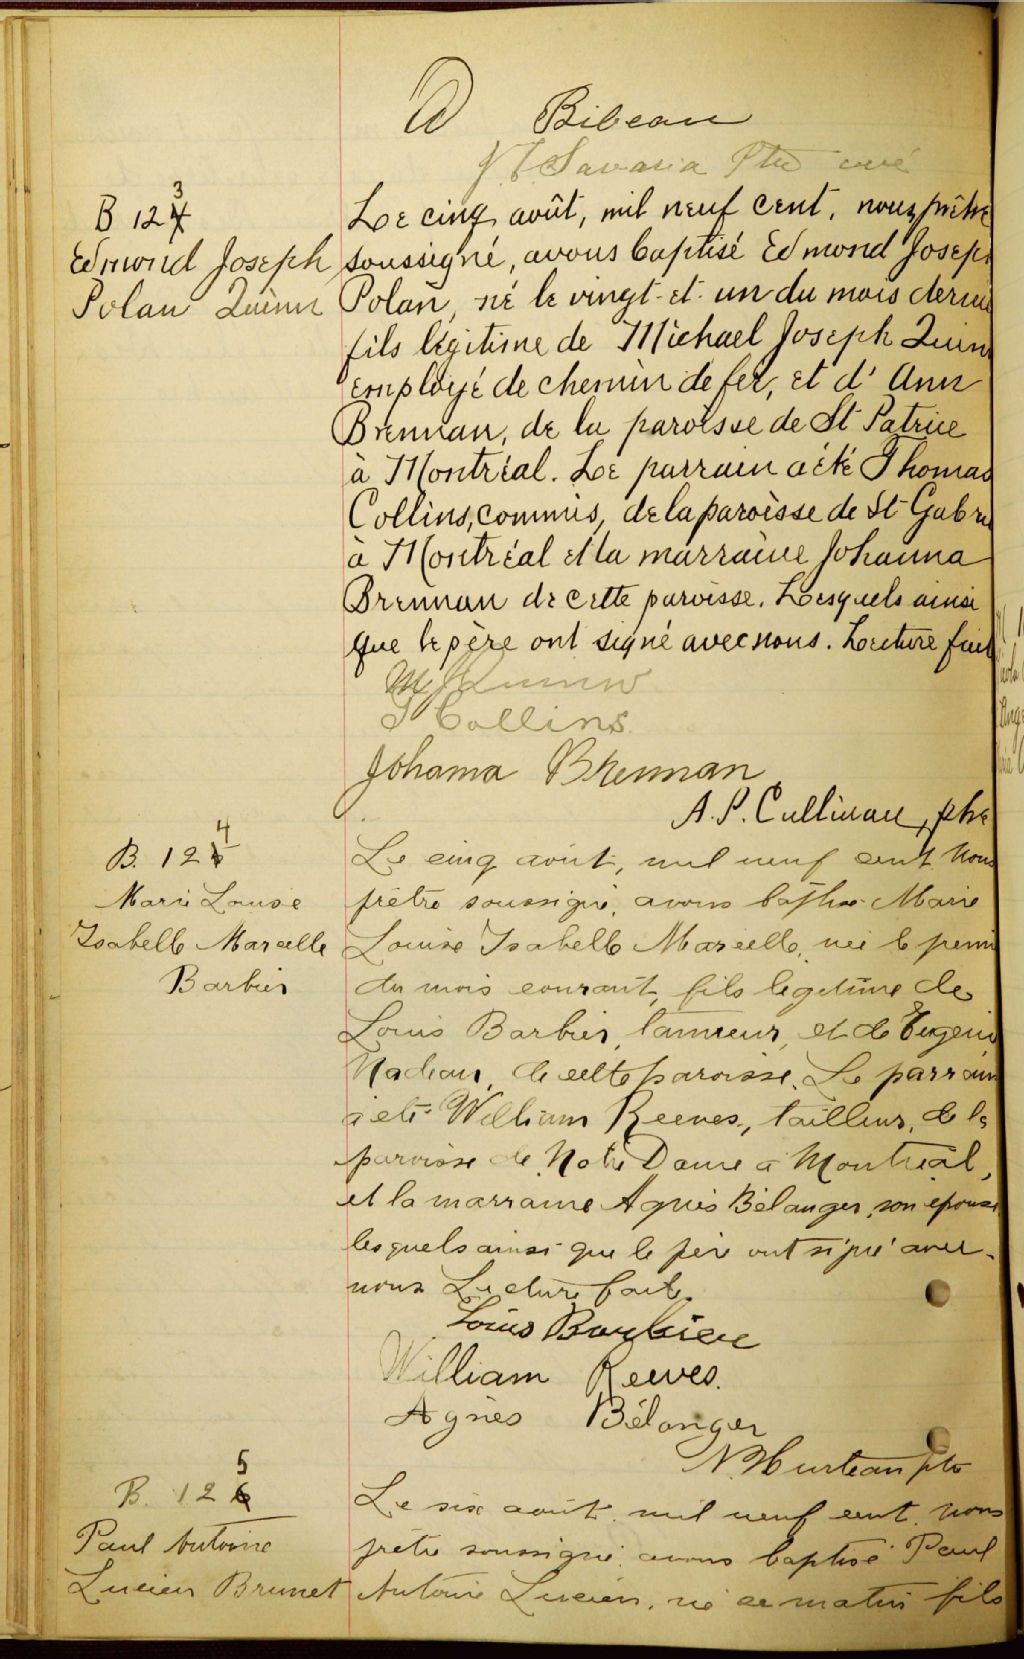 D Bibeau
J. T. Savaria Ptre curé
B 123
Edmond Joseph
Polan Quinn
Le cinq août, mil neuf cent, nous, prêtre
soussigné, avons baptisé Edmond Joseph
Polan, né le vingt-et-un du mois dernier
fils légitime de Michael Joseph Quinn
employé de chemin de fer, et d'Ann
Brennan, de la paroisse de St Patrice
à Montréal. Le parrain a été Thomas
Collins, commis, de la paroisse de St Gabriel
à Montréal et la marraine Johanna
Brennan de cette paroisse. Lesquels ainsi
que le père ont signé avec nous. Lecture faite
M J Quinn
T Collins.
Johanna Brennan
A. P. Cullinan, ptre
B. 124
Marie Louise
Isabelle Marcelle
Barbier
Le cinq août, mil neuf cent, nous
prêtre soussigné, avons baptisé Marie
Louise Isabelle Marcelle, née le premier
du mois courant, fils légitime de
Louis Barbier, tanneur, et de Eugenie
Nadeau, de cette paroisse. Le parrain
a été William Reeves, tailleur, de la
paroisse de Notre Dame à Montréal,
et la marraine Agnès Bélanger, son épouse
lesquels ainsi que le père ont signé avec
nous Lecture faite.
Louis Barbier
William Reeves.
Agnès Bélanger
N. Hurteau ptre
B. 125
Paul Antoine
Lucien Brunet
Le six août mil neuf cent, nous
prêtre soussigné, avons baptisé Paul
Antoine Lucien, né ce matin fils